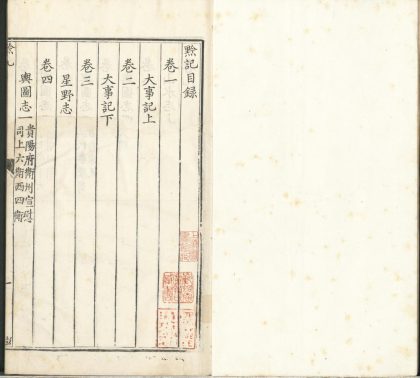 黔記目録
卷一
大事記上
卷二
大事記下
卷三
星野志
卷四
輿圖志一 貴陽府衛州宣慰
司上六衛西四衛